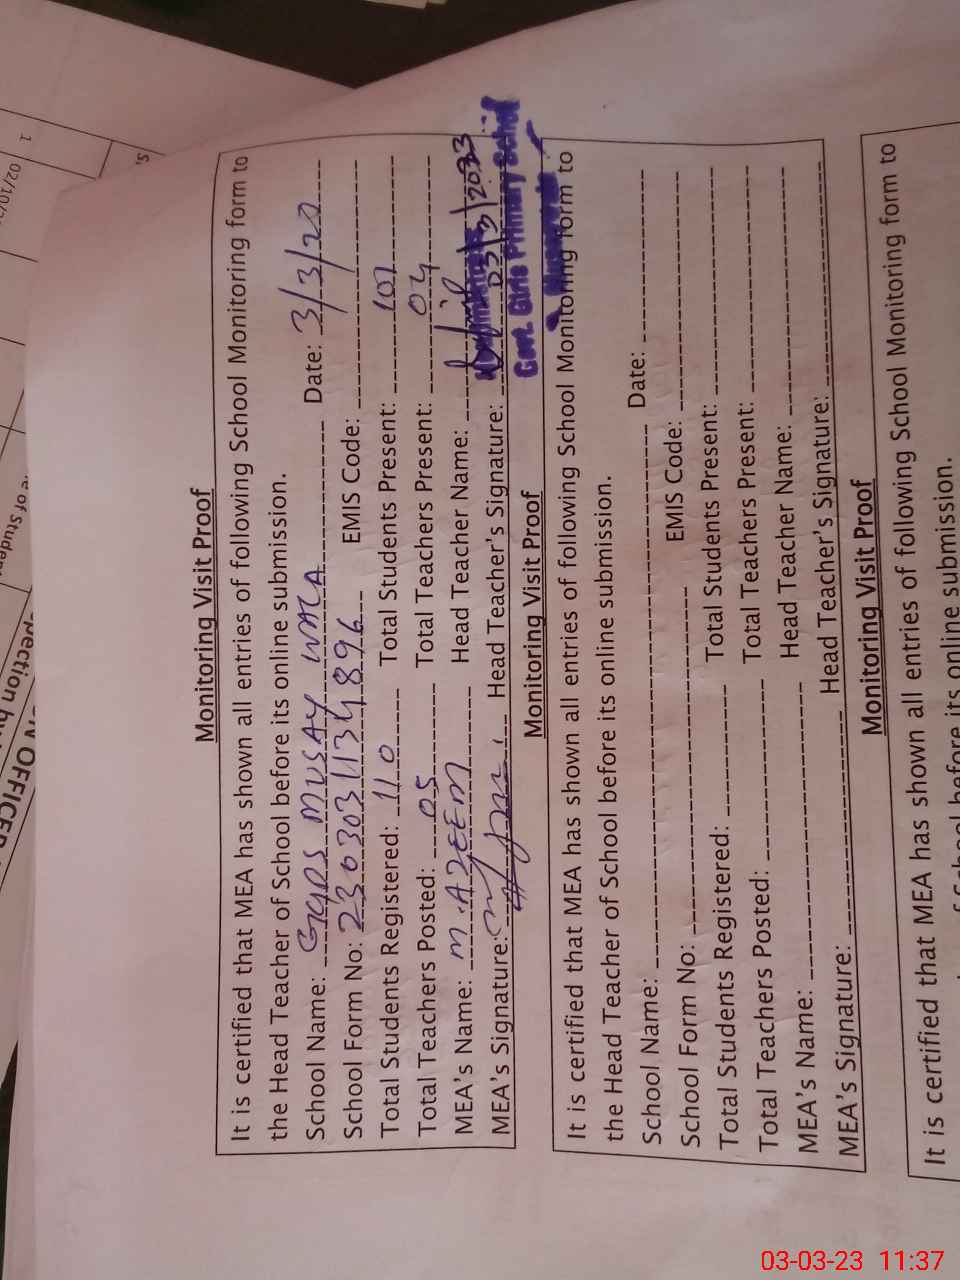 Monitoring Visit Proof
It is certified that MEA has shown all entries of following School Monitoring form to
the Head Teacher of School before its online submission.
School Name: GGPS MUSAY WALA Date: 3/3/23
School Form No: EMIS Code:
Total Students Registered: 110 Total Students Present: 107
Total Teachers Posted: 05 Total Teachers Present: 04
MEA's Name: M.AZEEM Head Teacher Name:
MEA's Signature: Head Teacher's Signature: 03/3/2023
Govt. Girls Primary School
Monitoring Visit Proof
It is certified that MEA has shown all entries of following School Monitoring form to
the Head Teacher of School before its online submission.
School Name: Date:
School Form No: EMIS Code:
Total Students Registered: Total Students Present:
Total Teachers Posted: Total Teachers Present:
MEA's Name: Head Teacher Name:
MEA's Signature: Head Teacher's Signature:
Monitoring Visit Proof
It is certified that MEA has shown all entries of following School Monitoring form to
School before its online submission.
OFFICER
e of studen
02/10/
1
S.
03-03-23 11:37